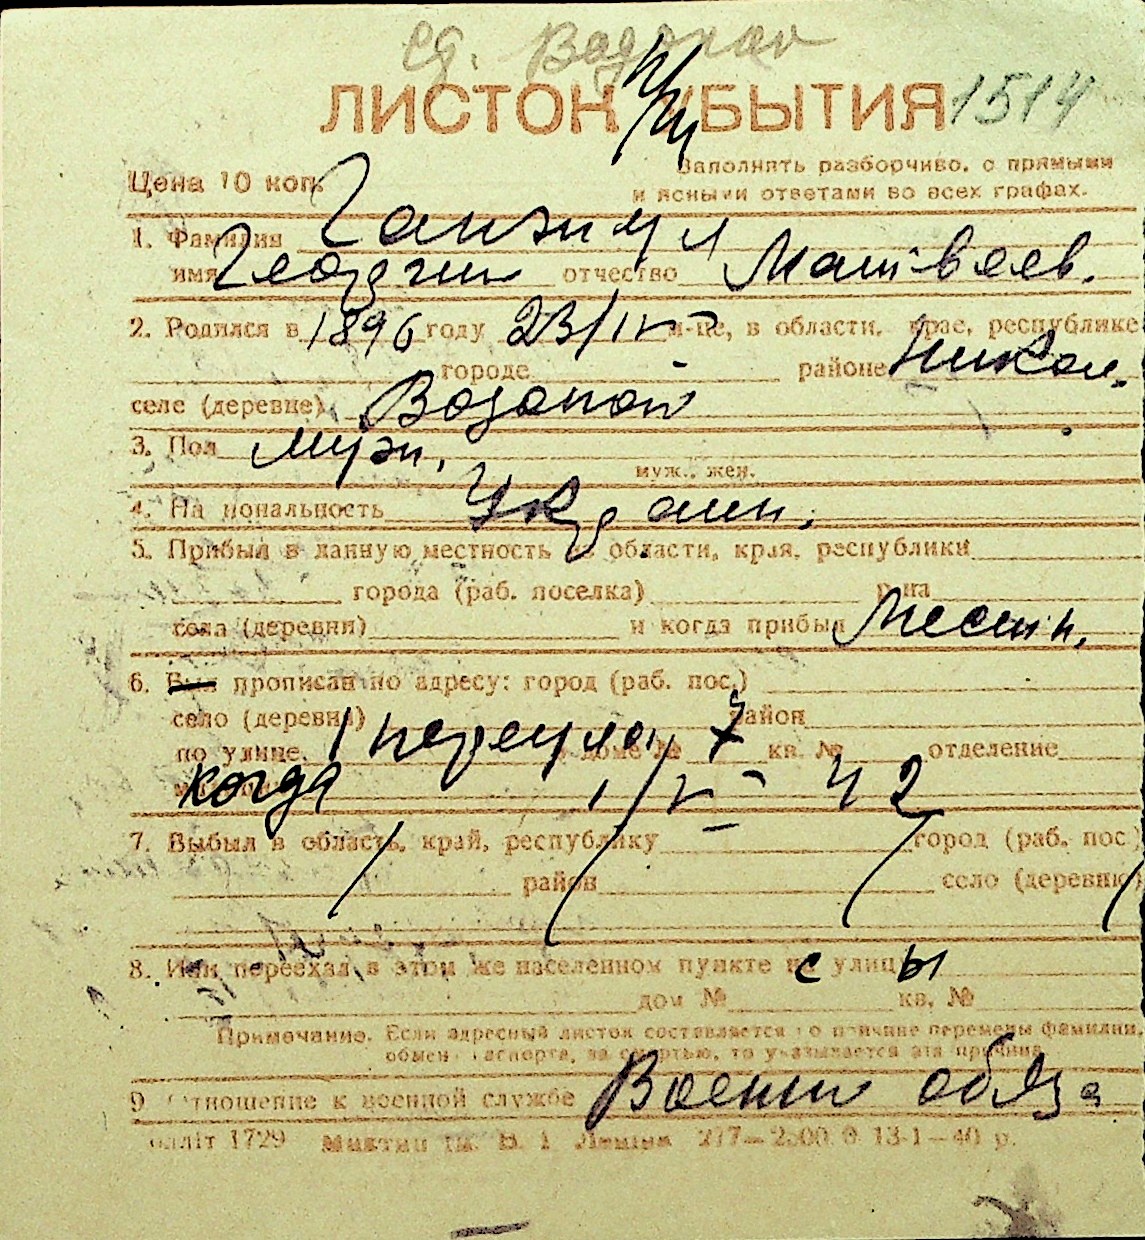 ЛИСТОК ПРИБЫТИЯ 1514
Цена 10 коп. Заполнять разборчиво, с прямыми
и ясными ответами во всех графах.
1. Фамилия
имя Георгий отчество Матвеев.
2. Родился в 1896 году 23/IV м-це, в области, крае, республике
городе районе Никол.
селе (деревне) Водопой
3. Пол муж.
муж., жен.
4. Национальность Украин.
5. Прибыл в данную местность из области, края, республики
города (раб. поселка) р-на
села (деревни) и когда прибыл Местн.
6. прописан по адресу: город (раб. пос.)
село (деревня) район
по улице 1 переулок дом № 7 кв. № отделение
когда 1/V-42
7. Выбыл в область, край, республику город (раб. пос.)
район село (деревню)
8. Или переехал в этом же населенном пункте с улицы
дом № кв. №
Примечание. Если адресный листок составляется по причине перемены фамилии,
обмена паспорта, за смертью, то указывается эта причина.
9. Отношение к военной службе Военно обяз
1729 277—2500 13-1—40 р.